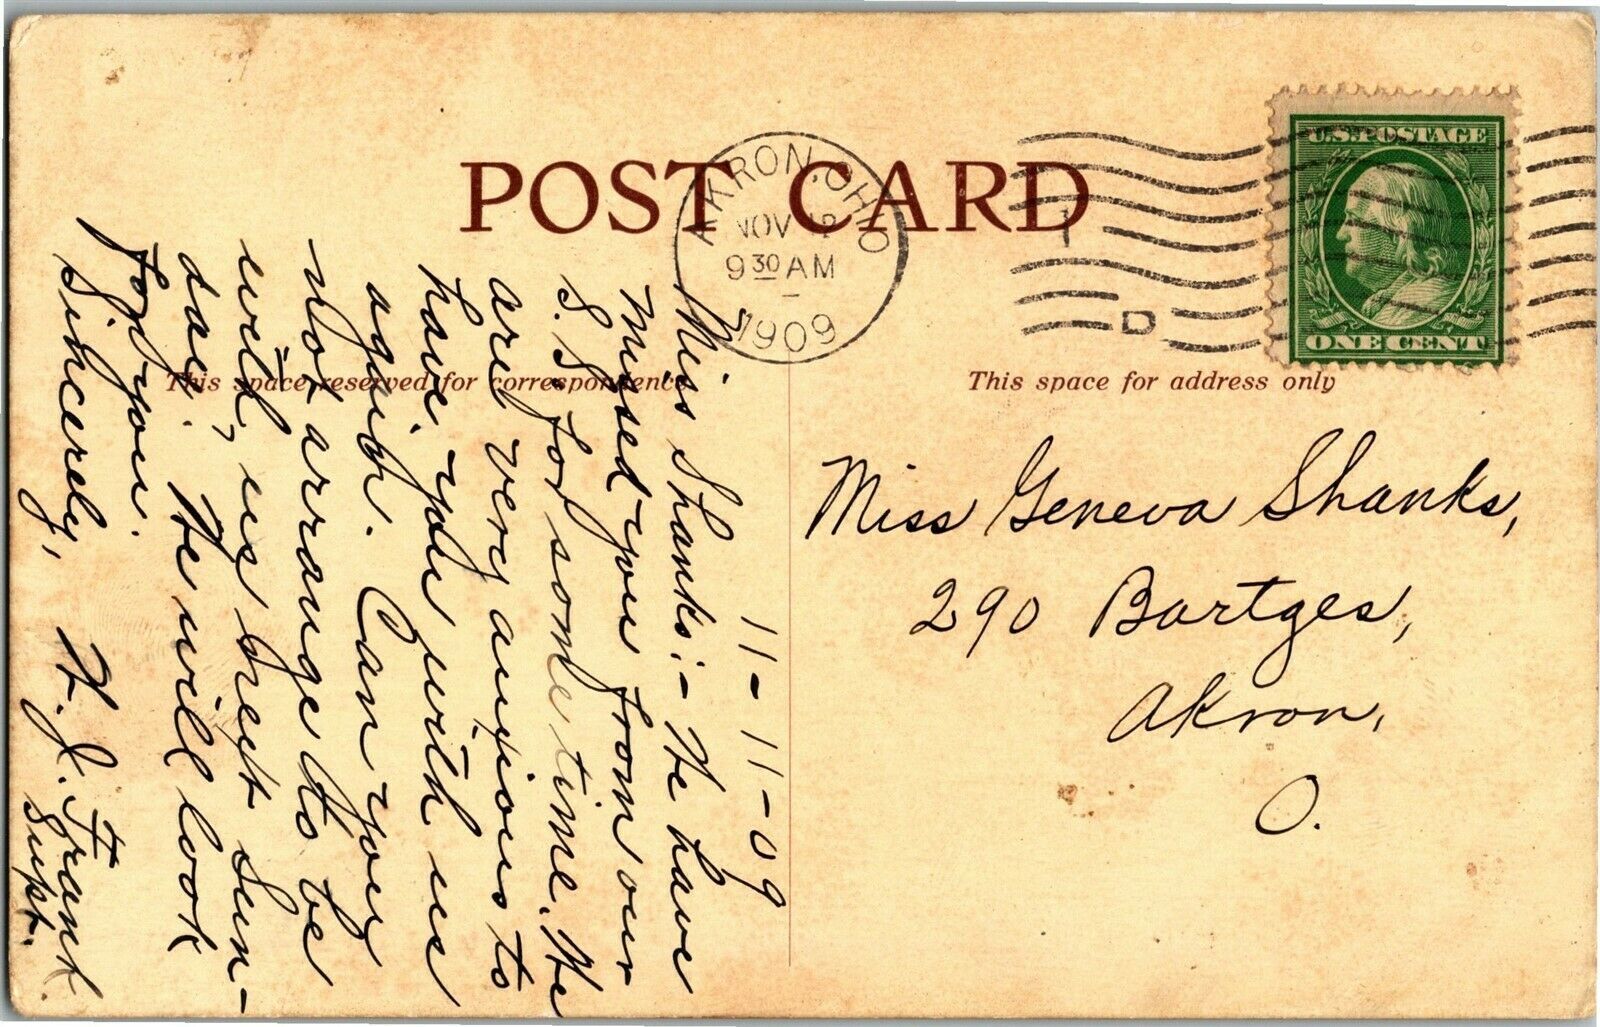 POST CARD
AKRON, OHIO
NOV 12
9 30 AM
1909
D
U.S. POSTAGE
ONE CENT
This space reserved for correspondence
This space for address only
11-11-09
Miss Shanks:- We have
missed you from our
S. S. for some time. We
are very anxious to
have you with us
again. Can you
not arrange to be
with us next Sun-
day. We will look
for you.
Sincerely,
H. J. Frank
Supt.
Miss Geneva Shanks,
290 Bartges,
Akron,
O.